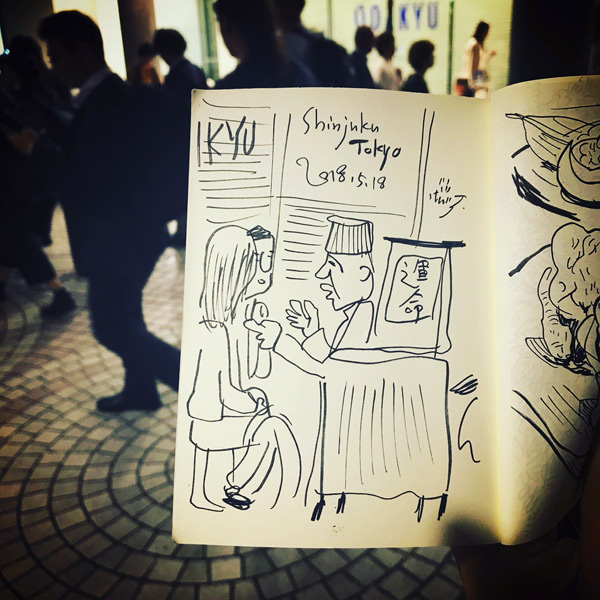 OD KYU
KYU
Shinjuku
Tokyo
2018.5.18
運命